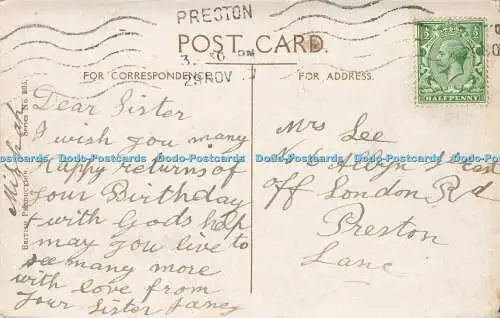 PRESTON
3. 30 PM
29 NOV
POST CARD.
FOR CORRESPONDENCE
FOR ADDRESS.
HALFPENNY
Dear Sister
I wish you many
Happy returns of
your Birthday
+ with Gods help
may you live to
see many more
with love from
Your Sister Janey
Mizpah
BRITISH PRODUCTION.
Mrs Lee
Off London Rd
Preston
Lanc
Dodo-Postcards Dodo-Postcards Dodo-Postcards Dodo-Postcards Dodo-Postcards